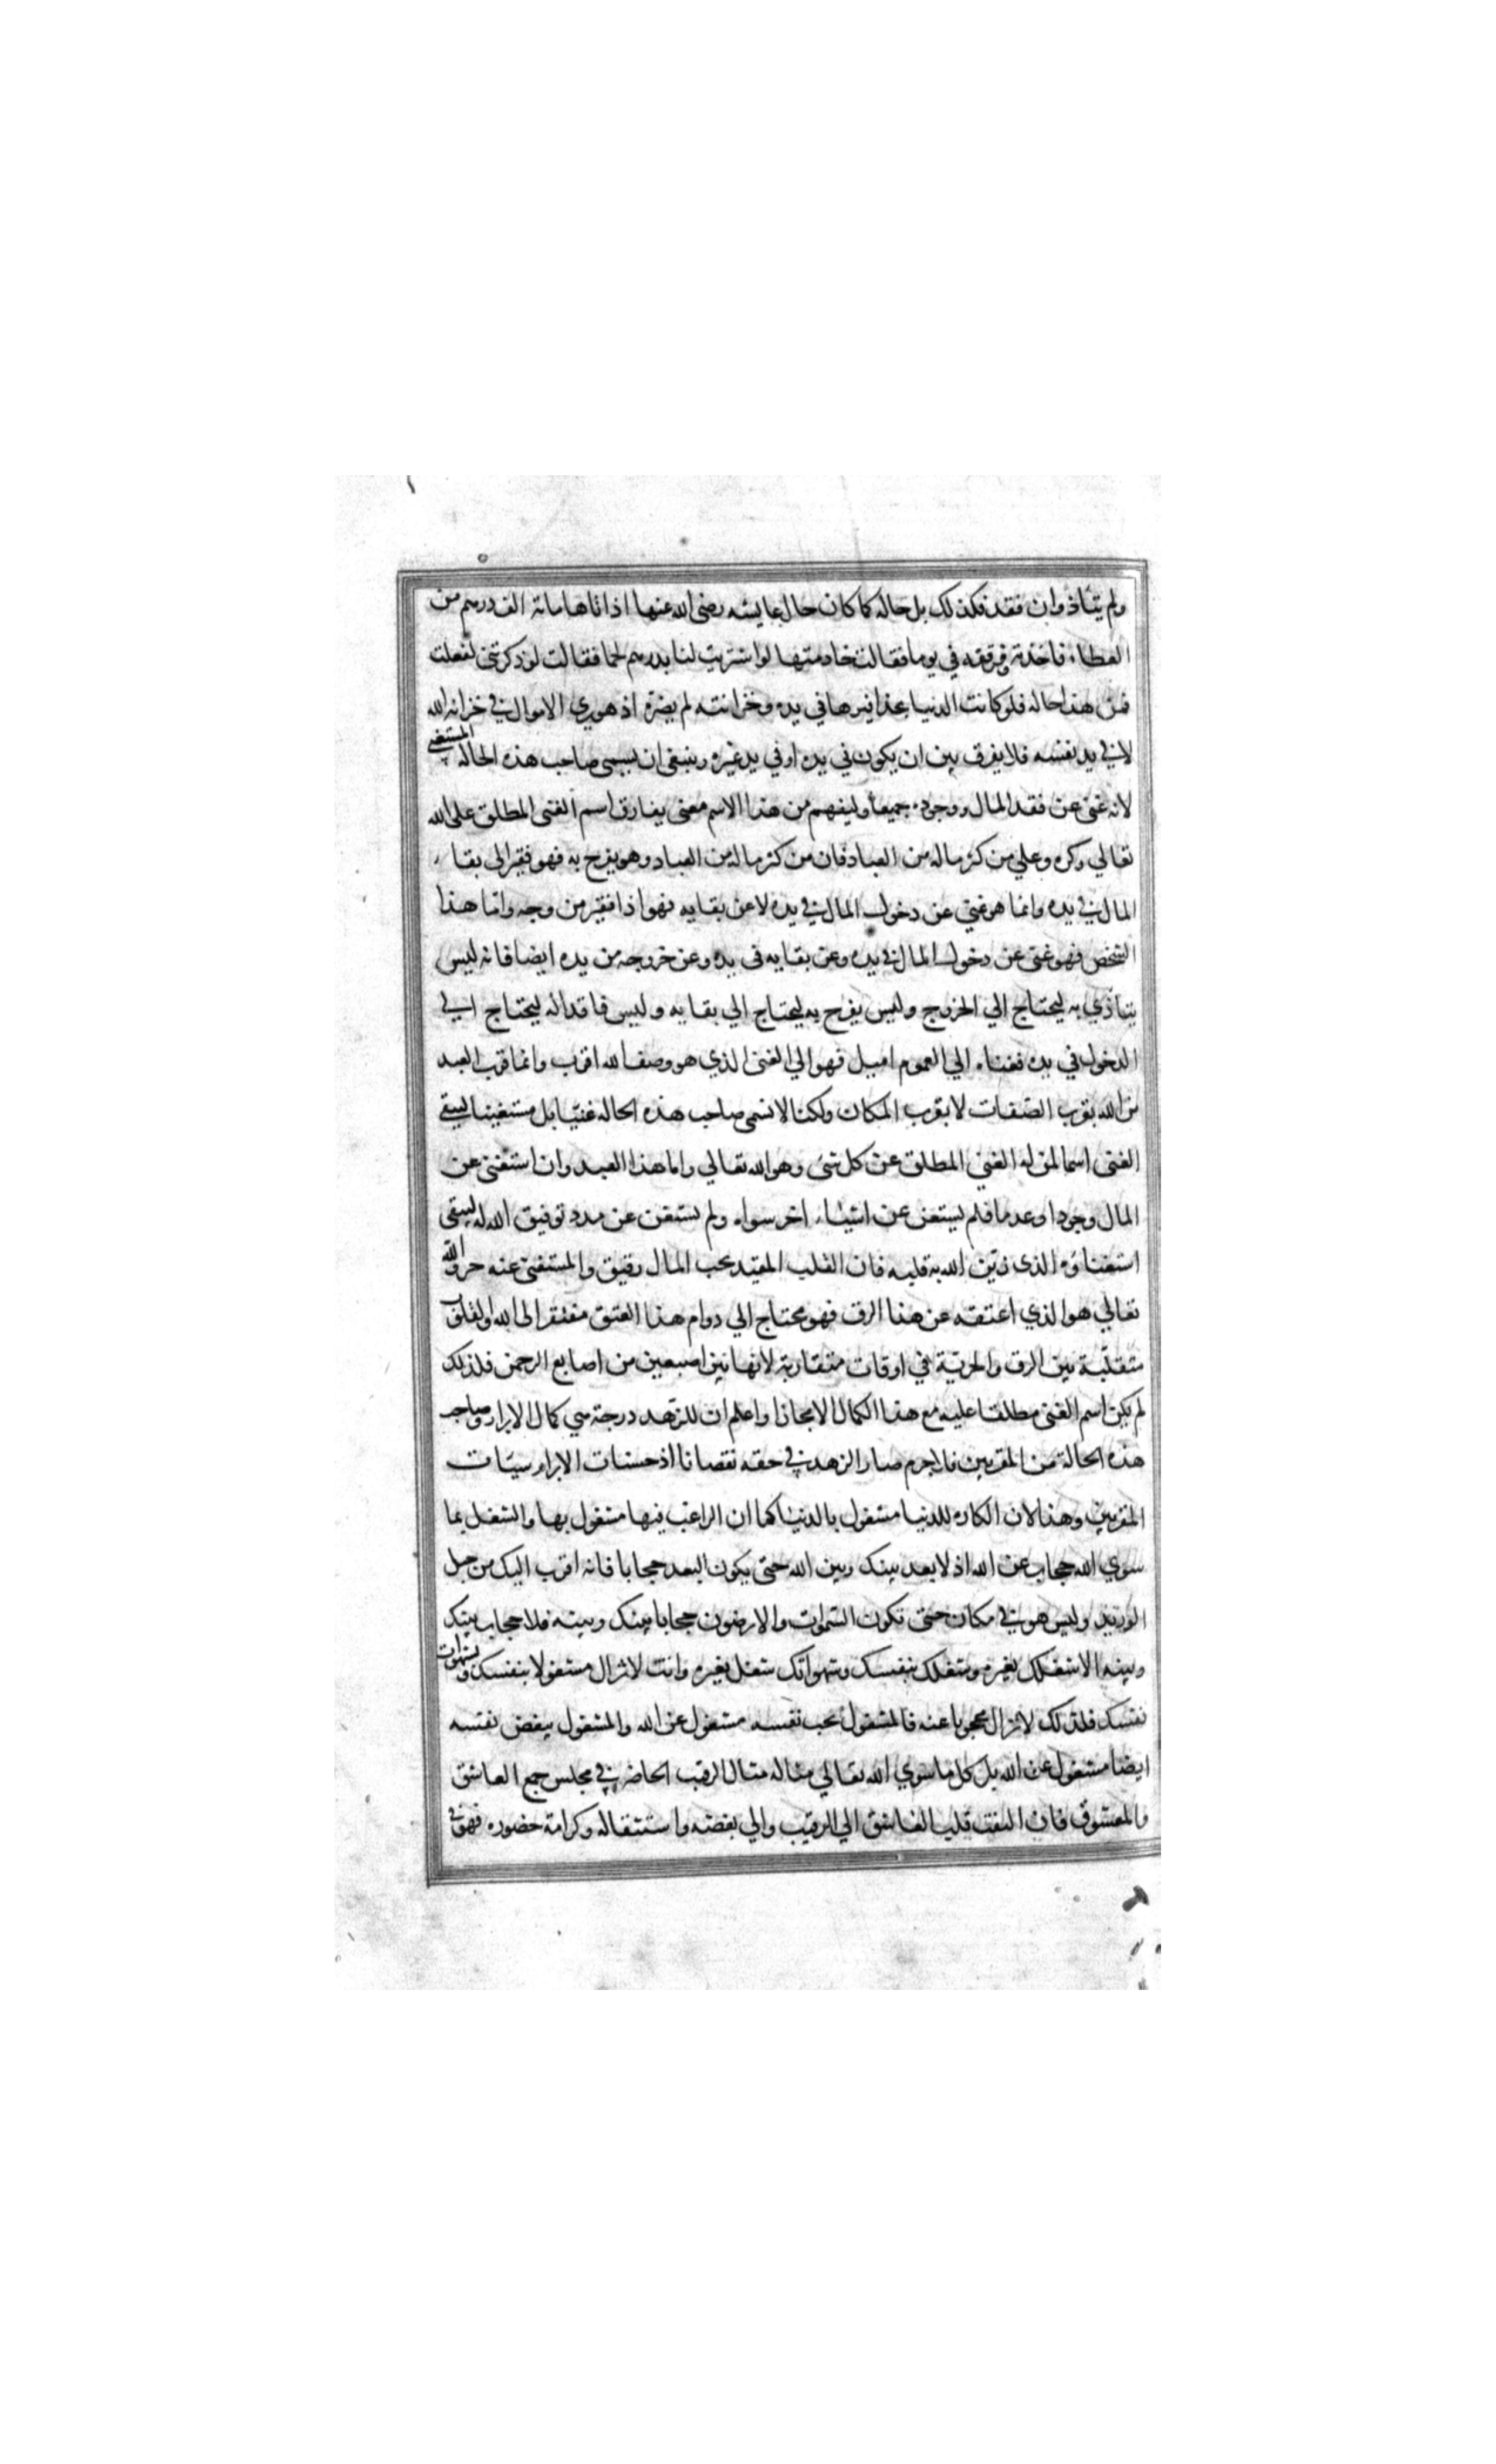 ولم يتأذ وان فقد فكذلك بل حاله كما كان حال عايشه رضى الله عنها اذ اتاها ماية الف درهم من
العطاء فاخذته وفرقته في يومها فقالت خادمتها لو اشتريت لنا بدرهم لحما فقالت لو ذكرتني لفعلت
فمن هذا حاله فلو كانت الدنيا بحذافيرها في يده وخزانته لم يضره اذ هو يري الاموال في خزانة الله
لا في يد نفسه فلا يفرق بين ان يكون في يده او في يد غيره وينبغى ان يسمى صاحب هذه الحالة المستغنى
لانه غنى عن فقد المال ووجوده جميعا وليفهم من هذا الاسم معنى يفارق اسم الغنى المطلق على الله
تعالي وكره وعلي من كثر ماله من العباد فان من كثر ماله من العباد وهو يفرح به فهو فقير الى بقاء
المال في يده وانما هو غنى عن دخول المال في يده لا عن بقايه فهو اذا فقير من وجه واما هذا
الشخص فهو غنى عن دخول المال في يده وعن بقايه فى يده وعن خروجه من يده ايضا فانه ليس
يتأذي به ليحتاج الي الخروج وليس يفرح به ليحتاج الي بقايه وليس فاقدا له ليحتاج الي
الدخول في يده فغناه الي العموم اميل فهو الي الغنى الذي هو وصف الله اقرب وانما قرب العبد
من الله بقرب الصفات لا بقرب المكان ولكنا لا نسمى صاحب هذه الحالة غنيا بل مستغنيا ليبقى
الغنى اسما لمن له الغنى المطلق عن كل شئ وهو الله تعالي واما هذا العبد وان استغنى عن
المال وجودا وعدما فلم يستغن عن اشياء اخر سواه ولم يستغن عن مدد توفيق الله له ليبقى
استغناؤه الذى زين الله به قلبه فان القلب المقيد بحب المال رقيق والمستغنى عنه حر والله
تعالي هو الذي اعتقه عن هذا الرق فهو محتاج الي دوام هذا العتق مفتقر الى الله والقلوب
متقلبة بين الرق والحرية في اوقات متقاربة لانها بين اصبعين من اصابع الرحمن فلذلك
لم يكن اسم الغنى مطلقا عليه مع هذا الكمال الا مجازا واعلم ان للزهد درجة هي كمال الابرار وصاحب
هذه الحالة من المقربين فلا جرم صار الزهد في حقه نقصانا اذ حسنات الابرار سيئات
المقربين وهذا لان الكاره للدنيا مشغول بالدنيا كما ان الراغب فيها مشغول بها والشغل بما
سوي الله حجاب عن الله اذ لا بعد بينك وبين الله حتى يكون البعد حجابا فانه اقرب اليك من حبل
الوريد وليس هو في مكان حتى تكون السموات والارضون حجابا بينك وبينه فلا حجاب بينك
وبينه الا شغلك بغيره وشغلك بنفسك وشهواتك شغل بغيره وانت لا تزال مشغولا بنفسك وشهوات
نفسك فلذلك لا تزال محجوبا عنه فالمشغول بحب نفسه مشغول عن الله والمشغول ببغض نفسه
ايضا مشغول عن الله بل كل ما سوي الله تعالي مثاله مثال الرقيب الحاضر في مجلس جمع العاشق
والمعشوق فان التفت قلب العاشق الي الرقيب والي بغضه واستثقاله وكراهة حضوره فهو في